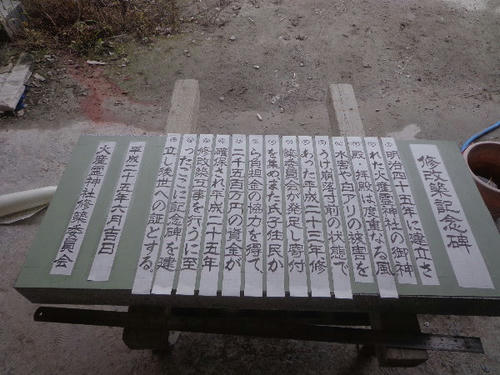 修改築記念碑
明治四十五年に建立さ
れた火産霊神社の御神
殿、拝殿は度重なる風
水害や白アリの被害を
うけ崩落寸前の状態で
あった平成二十三年修
築委員会が発足し寄付
を集めまた氏子住民か
ら負担金の協力を得て
二千五百万円の資金が
確保され平成二十五年
修改築工事を行うに至
ったここに記念碑を建
立し後世への証とする。
平成二十五年八月吉日
火産霊神社修築委員会